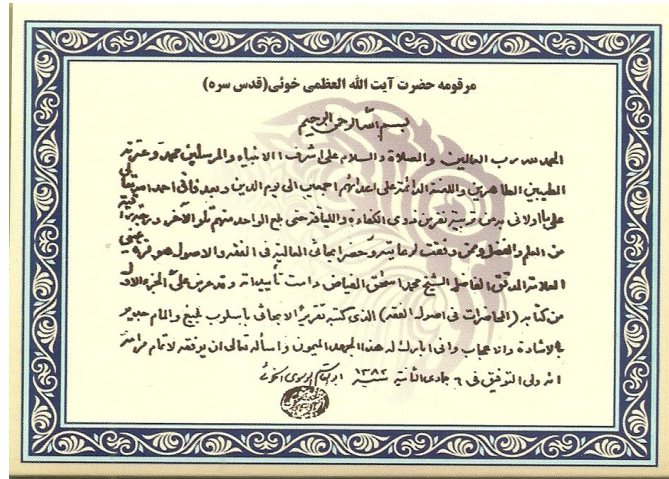 مرقومه حضرت آیت الله العظمی خوئی(قدس سره)
بسم الله الرحمن الرحیم
الحمد لله رب العالمین والصلاة والسلام علی اشرف الانبیاء والمرسلین محمد وعترته
الطیبین الطاهرین واللعنة الدائمة علی اعدائهم اجمعین الی یوم الدین وبعد فانی احمد الله تعالی
علی ما اولانی به من تربیة نفر من ذوی الکفاءة واللیاقة حتی بلغ الواحد منهم تلو الآخر درجة راقیة
من العلم والفضل وممن وفقت لرعایته وحضر ابحاثی العالیة فی الفقه والاصول هو قرة عینی
العلامة المدقق الفاضل الشیخ محمد اسحق الفیاض دامت تأییداته وقد عرض علی الجزء الاول
من کتابه (المحاضرات فی اصول الفقه) الذی کتبه تقریرا لابحاثی باسلوب بلیغ والمام جدیر
بالاشادة والاعجاب وانی ابارک له هذا الجهد المیمون واسأله تعالی ان یوفقه لاتمام
انه ولی التوفیق فی ٦ جمادی الثانیة سنة ١٣٨٢ ابو القاسم الموسوی الخوئی